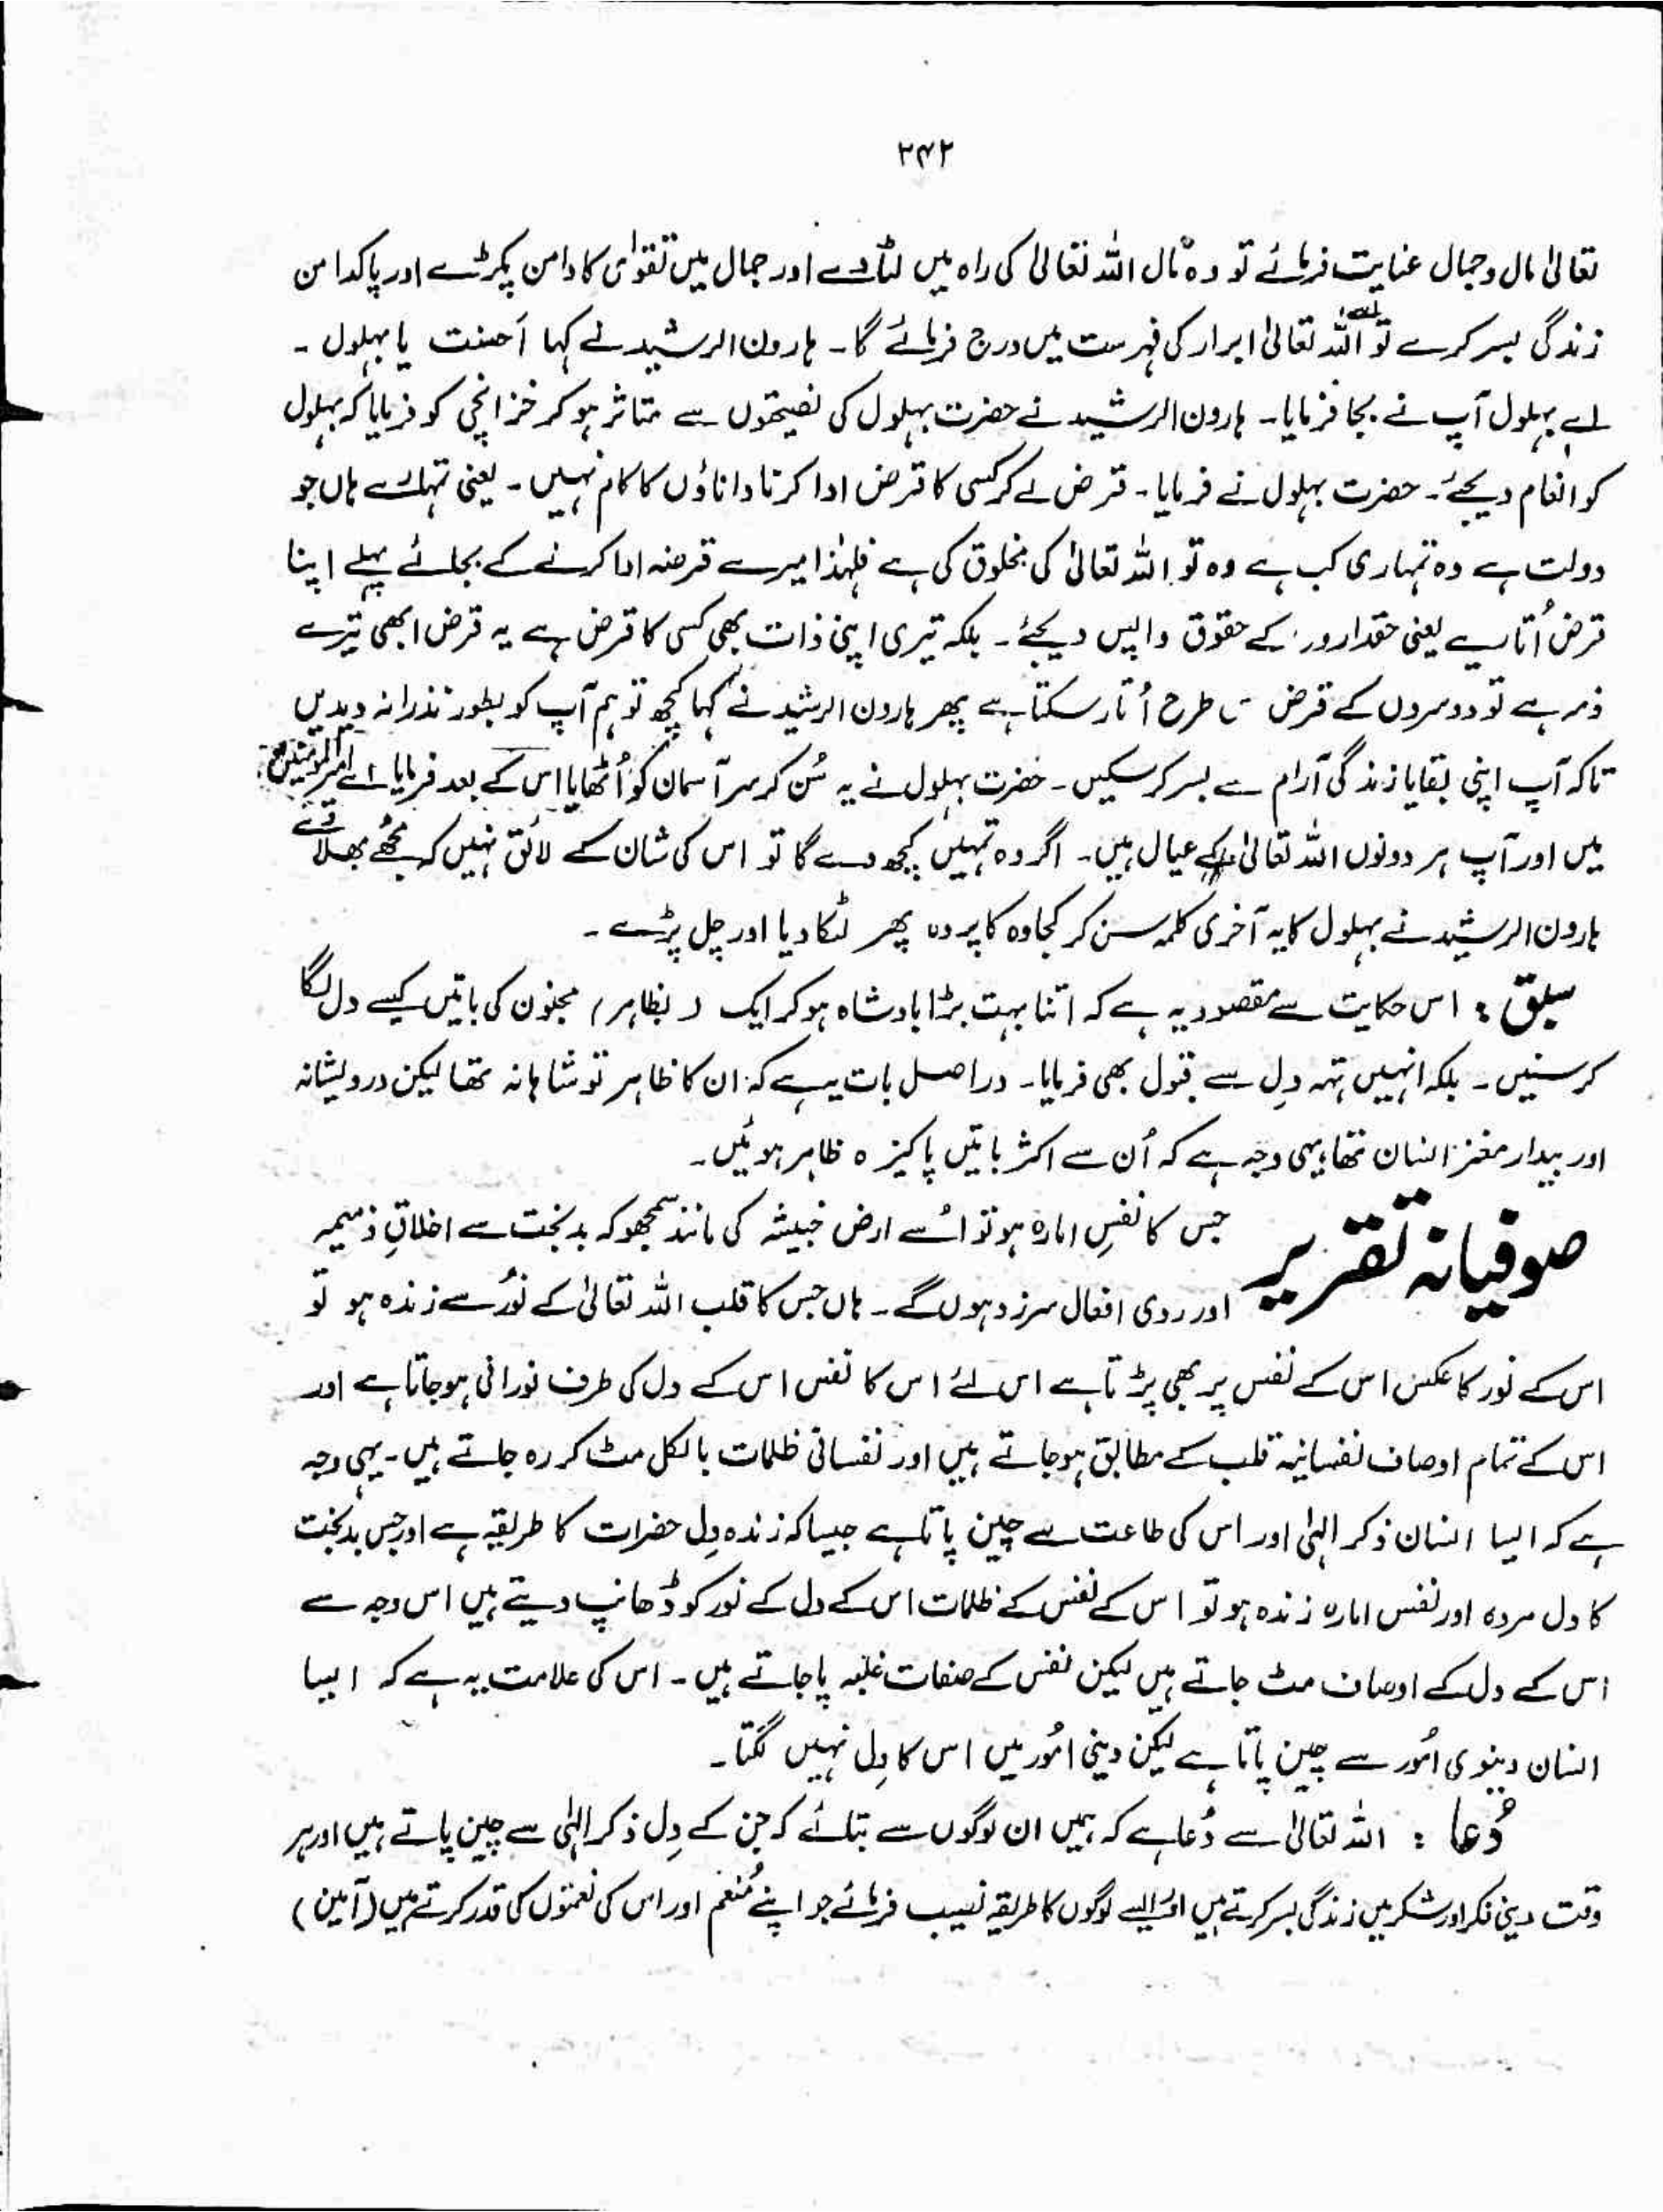 ۲۴۲
تعالیٰ مال و جمال عنایت فرمائے تو وہ مال اللہ تعالیٰ کی راہ میں لٹادے اور جمال میں تقوٰی کا دامن پکڑے اور پاکدامن
زندگی بسر کرے تو اسے اللہ تعالیٰ ابرار کی فہرست میں درج فرمائے گا۔ ہارون الرشید نے کہا اَحسنت یا بہلول ۔
اے بہلول آپ نے بجا فرمایا۔ ہارون الرشید نے حضرت بہلول کی نصیحتوں سے متاثر ہو کر خزانچی کو فرمایا کہ بہلول
کو انعام دیجئے۔ حضرت بہلول نے فرمایا۔ قرض لے کر کسی کا قرض ادا کرنا داناؤں کا کام نہیں۔ یعنی تمہارے ہاں جو
دولت ہے وہ تمہاری کب ہے وہ تو اللہ تعالیٰ کی مخلوق کی ہے فلہٰذا میرے قرضہ ادا کرنے کے بجائے پہلے اپنا
قرض اُتاریے یعنی حقداروں کے حقوق واپس دیجئے۔ بلکہ تیری اپنی ذات بھی کسی کا قرض ہے یہ قرض ابھی تیرے
ذمہ ہے تو دوسروں کے قرض طرح اُتار سکتا ہے پھر ہارون الرشید نے کہا کچھ تو ہم آپ کو بطور نذرانہ دیدیں
تاکہ آپ اپنی بقایا زندگی آرام سے بسر کرسکیں۔ حضرت بہلول نے یہ سُن کر سر آسمان کو اُٹھایا اس کے بعد فرمایا اے امیرالمومنین
میں اور آپ ہر دونوں اللہ تعالیٰ کے عیال ہیں۔ اگر وہ تمہیں کچھ دے گا تو اس کی شان کے لائق نہیں کہ مجھے بھلا دے
ہارون الرشید نے بہلول کا یہ آخری کلمہ سن کر کجاوہ کا پردہ پھر لٹکا دیا اور چل پڑے ۔
سبق : اس حکایت سے مقصود یہ ہے کہ اتنا بہت بڑا بادشاہ ہو کر ایک ( بظاہر ) مجنون کی باتیں کیسے دل لگا
کر سنیں ۔ بلکہ انہیں تہہ دِل سے قبول بھی فرمایا۔ دراصل بات یہ ہے کہ ان کا ظاہر تو شاہانہ تھا لیکن درویشانہ
اور بیدار مغز انسان تھا یہی وجہ ہے کہ اُن سے اکثر باتیں پاکیزہ ظاہر ہوئیں۔
صوفیانہ تقریر جس کا نفسِ امارہ ہو تو اُسے ارض خبیثہ کی مانند سمجھو کہ بدبخت سے اخلاقِ ذمیمہ
اور ردی افعال سرزد ہوں گے۔ ہاں جس کا قلب اللہ تعالیٰ کے نُور سے زندہ ہو تو
اس کے نور کا عکس اس کے نفس پر بھی پڑتا ہے اس لئے اس کا نفس اس کے دل کی طرف نورانی ہوجاتا ہے اور
اس کے تمام اوصاف نفسانیۃ قلب کے مطابق ہوجاتے ہیں اور نفسانی ظلمات بالکل مٹ کر رہ جاتے ہیں۔ یہی وجہ
ہے کہ ایسا انسان ذکر الہٰی اور اس کی طاعت سے چین پاتا ہے جیسا کہ زندہ دِل حضرات کا طریقہ ہے اور جس بدبخت
کا دل مردہ اور نفس امارہ زندہ ہو تو اس کے نفس کے ظلمات اس کے دل کے نور کو ڈھانپ دیتے ہیں اس وجہ سے
اس کے دل کے اوصاف مٹ جاتے ہیں لیکن نفس کے صفات غلبہ پا جاتے ہیں۔ اس کی علامت یہ ہے کہ ایسا
انسان دینوی امُور سے چین پاتا ہے لیکن دینی امُور میں اس کا دِل نہیں لگتا۔
دُعا : اللہ تعالیٰ سے دُعا ہے کہ ہمیں ان لوگوں سے بتائے کہ جن کے دِل ذکر الہٰی سے چین پاتے ہیں اور ہر
وقت دینی فکر اور شکر میں زندگی بسر کرتے ہیں اور ایسے لوگوں کا طریقہ نصیب فرمائے جو اپنے مُنعم اور اس کی نعمتوں کی قدر کرتے ہیں (آمین)